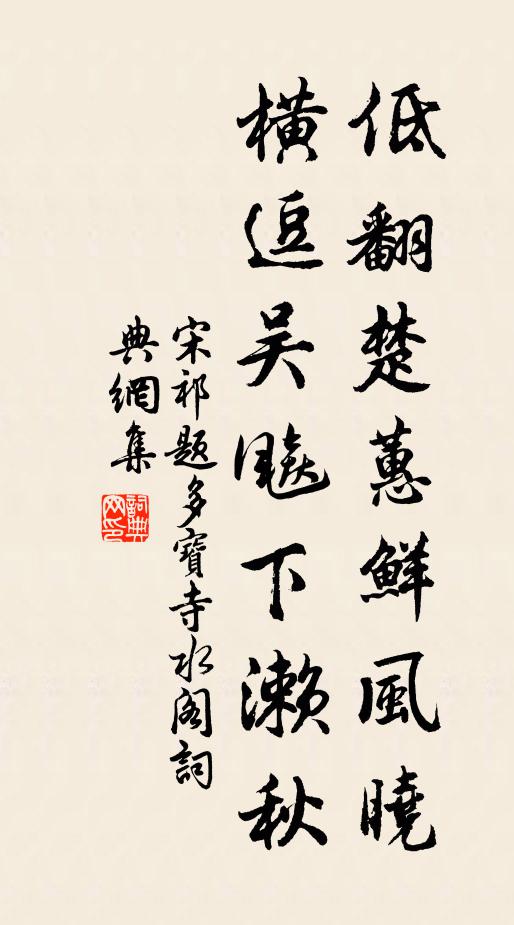 低翻楚蕙鮮風曉
橫逗吳下瀨秋
宋祁題多寶寺水閣詞
典網集
詞典
網印